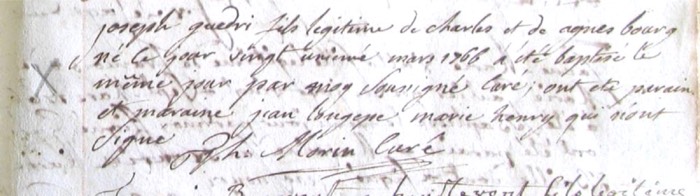 joseph guedri fils legitime de charles et de agnes bourg
né le jour vingt uniemé mars 1766 a été baptisé le
même jour par moy Sousigné Curé; ont été parain
et maraine jean marie henry qui n'ont
Signé
Ph. Morin Curé